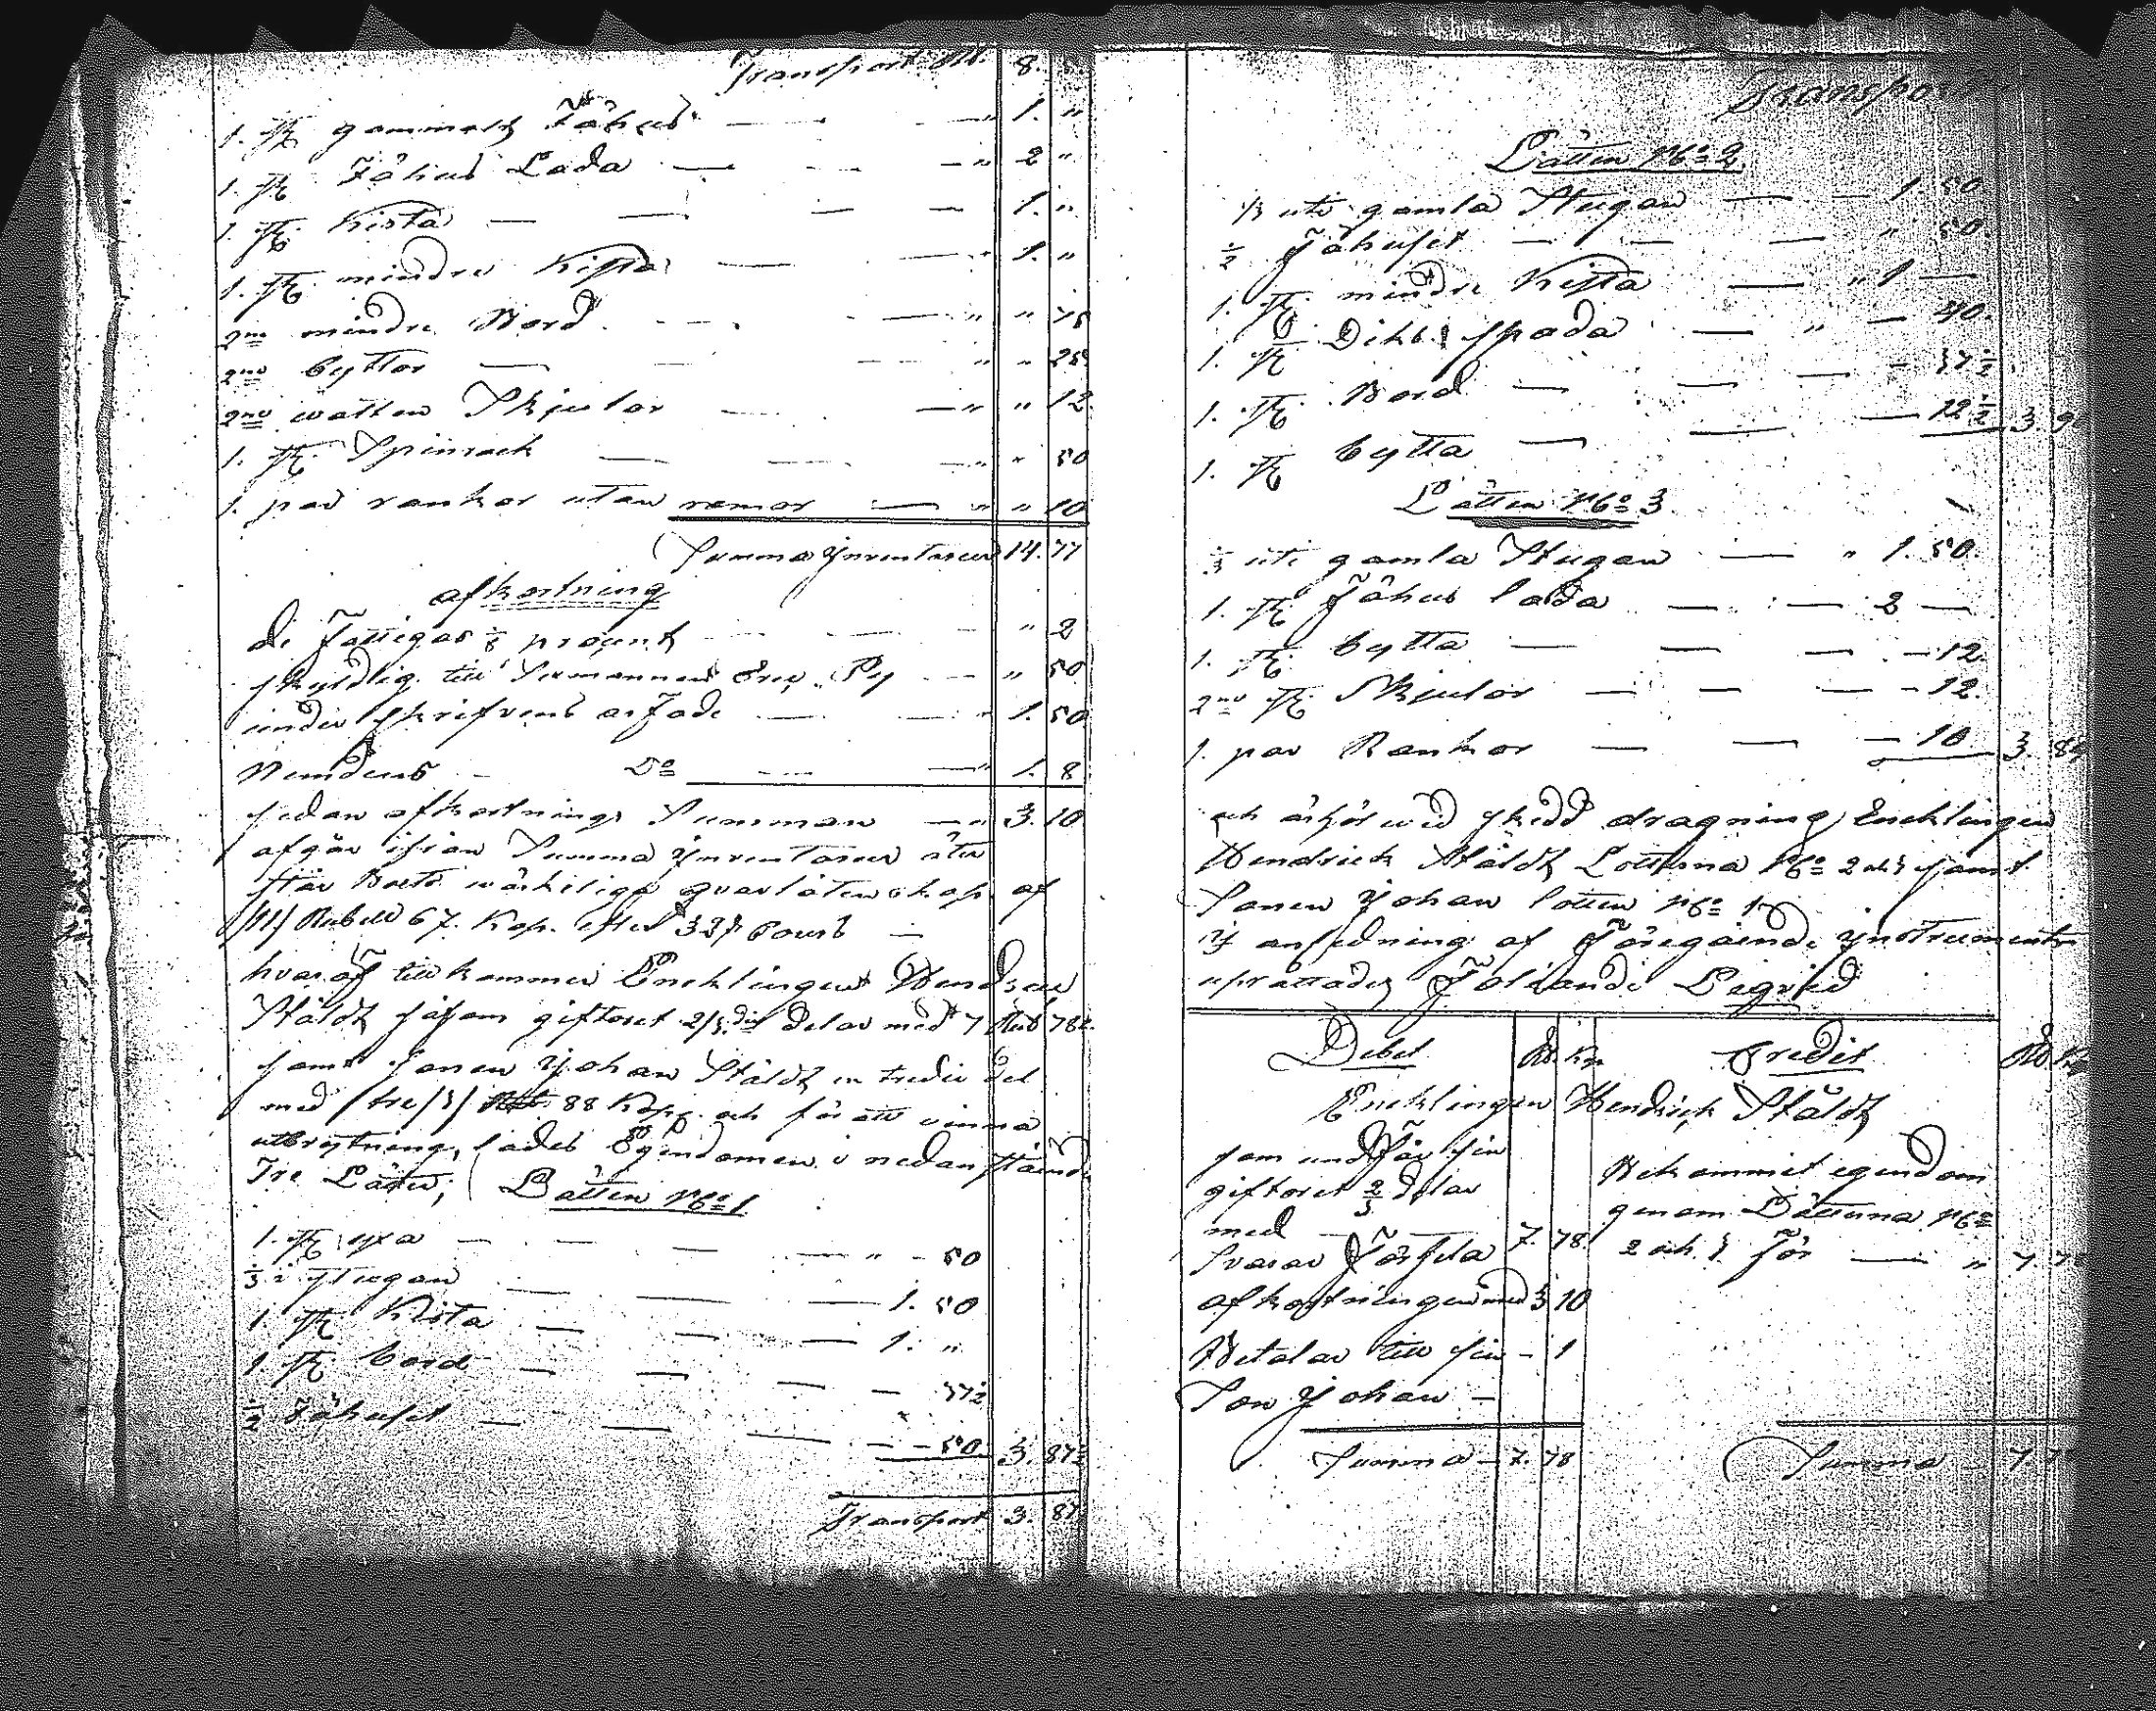 Transport 8.
1. st. gammalt Fähus — " 1. "
1. st. Fähus Lada — " 2 "
1. st. Kista — 1. "
1. st. mindre Kista — " 1. "
2ne mindre Bord — " " 75
2ne byttor — " " 25
2ne watten Skjulor — " " 12
1. st. Spinrock — " " 50
1. par rankor utan remor — " " 10
Summa Jnventarium 14. 77
afkortning
de Fattigas 1/8 procent — " 2
skyldig till — " 50
under skrifvens arfade — " 1. 50
Nemdens Do — " 1. 8
sedan afkortnings Summan — " 3. 10
afgår ifrån Summa Jnventarium åter
står Boets wärkeliga qvarlåtenskap af
/11/ Rubell 67. Kop. efter Cours —
hvaraf tillkommer Encklingen Hendrick
Ståldt såsom giftoret 2/3 delar med 7 Rub 78 k.
samt sonen Johan Ståldt en tredie del
med /tre/3/ 88 Kop. och för att vinna
utbrytning, lades Egendomen i nedanstående
Tre Låtter; Låtten No 1
1. st. yxa — " - 50
1/3 i stugan — 1. 50
1. st. Kista — 1. "
1. st. bord — 37½
½ Fähuset — 50. 3. 87½
Transport 3. 87
Transport
Låtten No 2
1/3 uti gamla Stugan — 1. 50
½ Fähuset — " 50.
1. st. mindre Kista — " 1 —
1. st. Dikes spada — " — 40.
1. st. Bord — 37½
1. st. bytta — 12½ 3. 90
Låtten No 3
1/3 uti gamla Stugan — " 1. 50.
1. st. Fähus lada — 2 —
1. st. bytta — 12.
2ne st. Skjulor — 12.
1. par Rankor — 10 3. 84
och wid skedd dragning Encklingen
Hendrick Ståldt Lotterna No 2 och 3 samt
Sonen Johan lotten No 1
J anledning af Föregående Jnstrument
uprättades Föliande Liqvid
Debet Rb. Kop Credit Rb. Kop
Encklingen Hendrick Ståldt
som undfår sin
giftoret 2/3 delar
med — 7. 78.
Svarar För hela
afkortningen med 3 10
Betalar till sin - 1
Son Johan -
Summa - 7. 78
Bekommit egendom
genom Låtterna No
2 och 3 För — " 7. 7
Summa - 7. 7